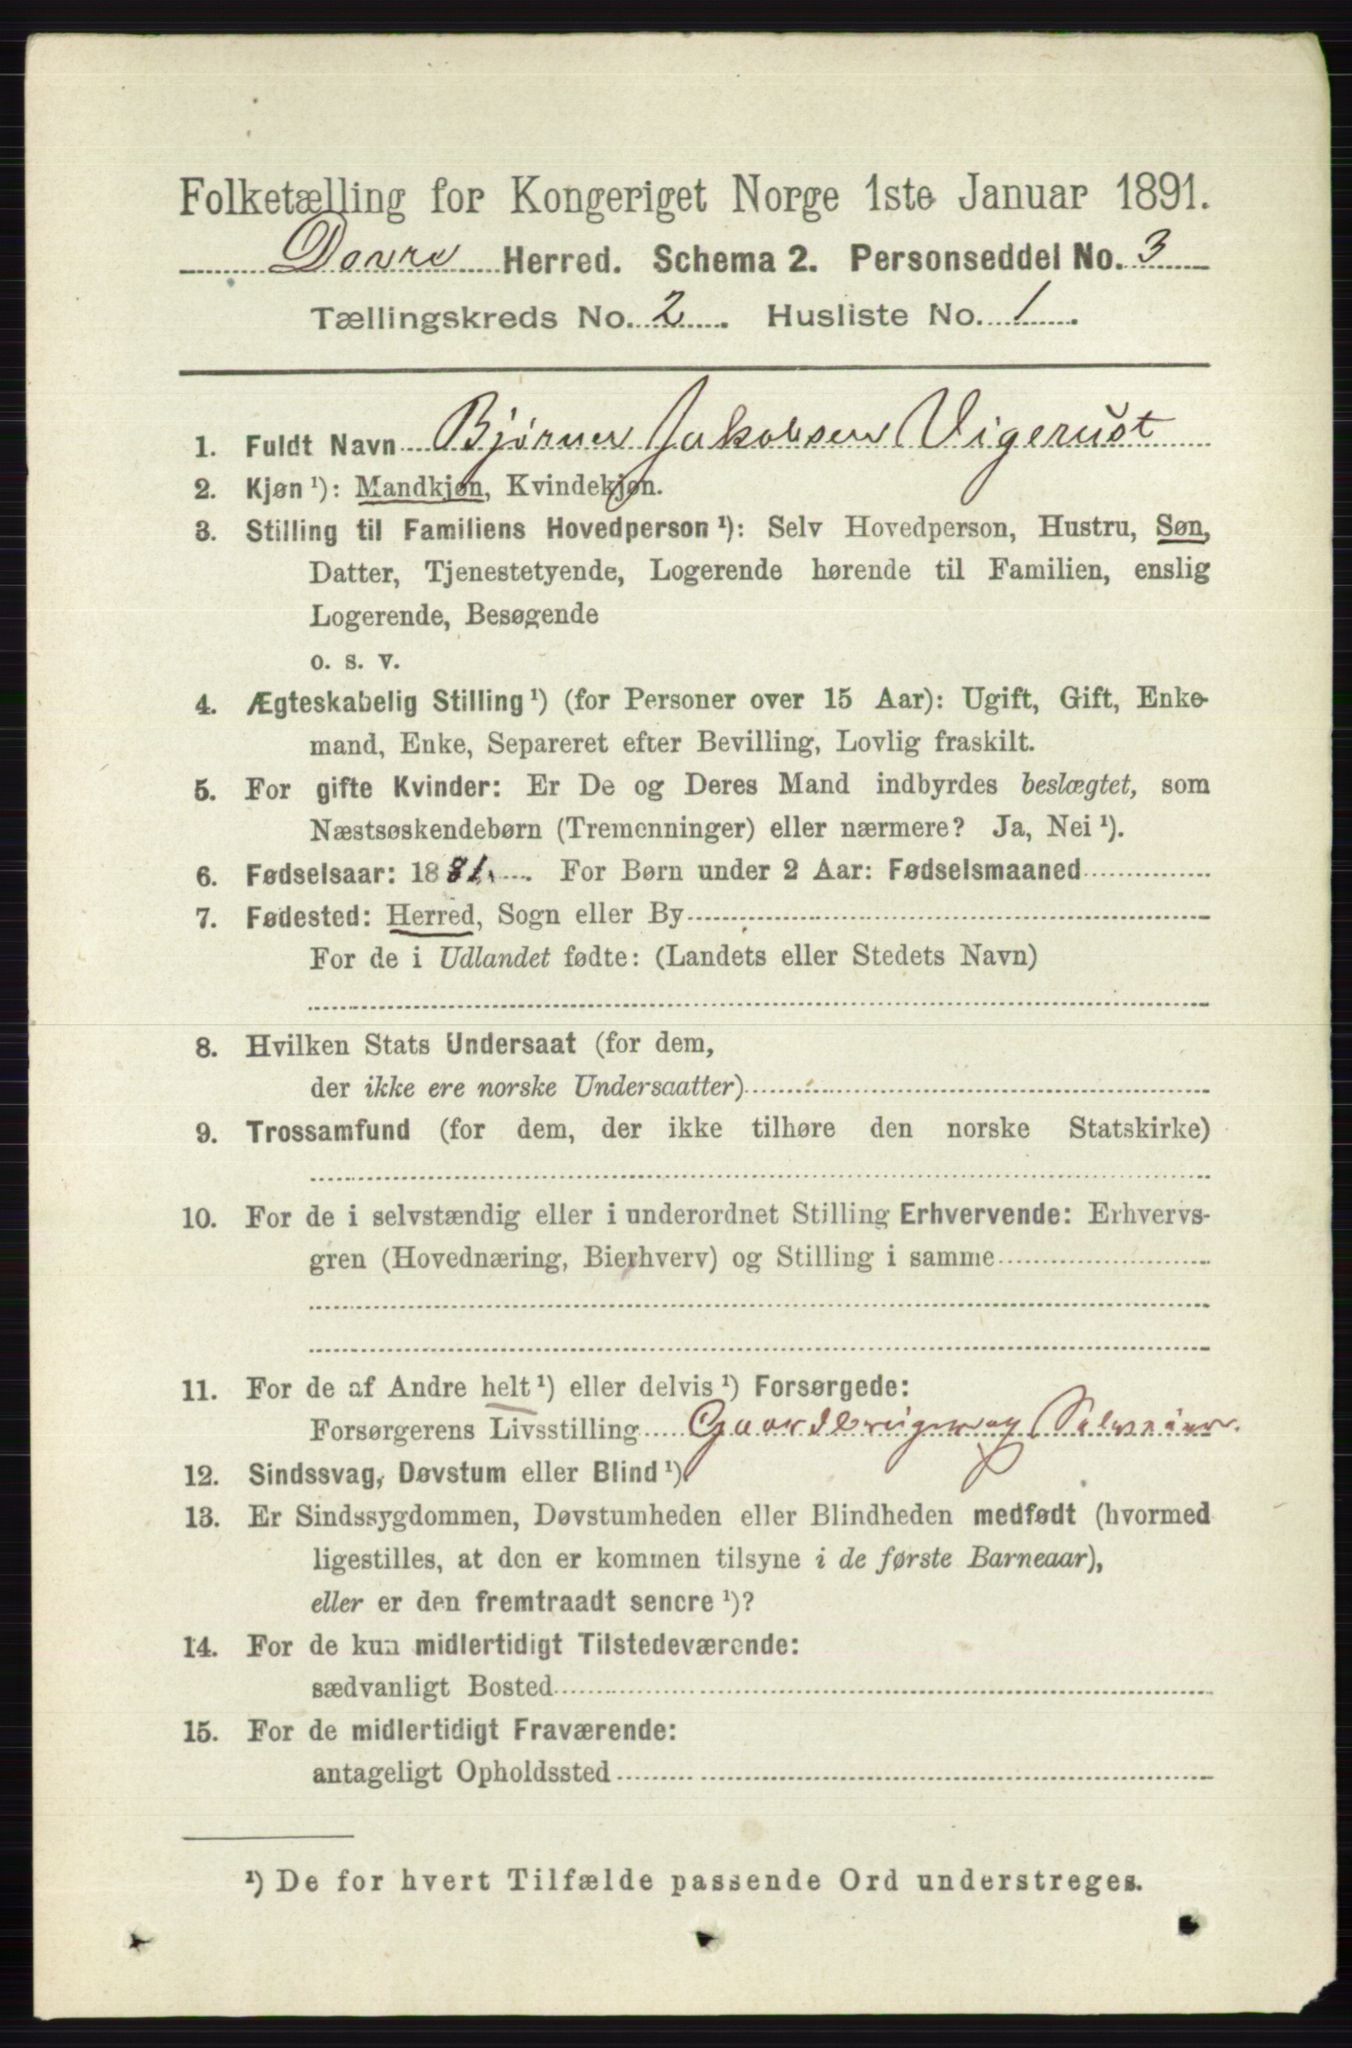 Folketælling for Kongeriget Norge 1ste Januar 1891.
Dovre Herred. Schema 2. Personseddel No. 3
Tællingskreds No. 2. Husliste No. 1.
1. Fuldt Navn Bjørner Jakobsen Vigerust
2. Kjøn ¹): Mandkjøn, Kvindekjøn.
3. Stilling til Familiens Hovedperson ¹): Selv Hovedperson, Hustru, Søn,
Datter, Tjenestetyende, Logerende hørende til Familien, enslig
Logerende, Besøgende
o. s. v.
4. Ægteskabelig Stilling ¹) (for Personer over 15 Aar): Ugift, Gift, Enke-
mand, Enke, Separeret efter Bevilling, Lovlig fraskilt.
5. For gifte Kvinder: Er De og Deres Mand indbyrdes beslægtet, som
Næstsøskendebørn (Tremenninger) eller nærmere? Ja, Nei ¹).
6. Fødselsaar: 1881. For Børn under 2 Aar: Fødselsmaaned
7. Fødested: Herred, Sogn eller By
For de i Udlandet fødte: (Landets eller Stedets Navn)
8. Hvilken Stats Undersaat (for dem,
der ikke ere norske Undersaatter)
9. Trossamfund (for dem, der ikke tilhøre den norske Statskirke)
10. For de i selvstændig eller i underordnet Stilling Erhvervende: Erhvervs-
gren (Hovednæring, Bierhverv) og Stilling i samme
11. For de af Andre helt ¹) eller delvis ¹) Forsørgede:
Forsørgerens Livsstilling Gaardbruger og Selveier.
12. Sindssvag, Døvstum eller Blind ¹).
13. Er Sindssygdommen, Døvstumheden eller Blindheden medfødt (hvormed
ligestilles, at den er kommen tilsyne i de første Barneaar),
eller er den fremtraadt senere ¹)?
14. For de kun midlertidigt Tilstedeværende:
sædvanligt Bosted
15. For de midlertidigt Fraværende:
antageligt Opholdssted
¹) De for hvert Tilfælde passende Ord understreges.